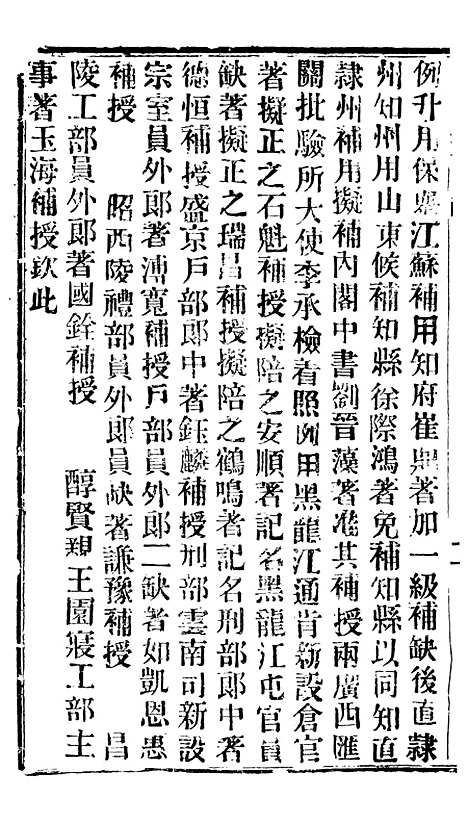 例升用保舉江蘇補用知府崔鼎著加一級補缺後直隸
州知州用山東候補知縣徐際鴻著免補知縣以同知直
隸州補用擬補內閣中書劉晉藻著准其補授兩廣西匯
關批驗所大使李承檢着照例用黑龍江通肯新設倉官
著擬正之石魁補授擬陪之安順著記名黑龍江屯官員
缺著擬正之瑞昌補授擬陪之鶴鳴著記名刑部郎中著
德恒補授盛京戶部郎中著鈺麟補授刑部雲南司新設
宗室員外郎著溥寬補授戶部員外郎二缺著如凱恩惠
補授 昭西陵禮部員外郎員缺著謙豫補授 昌
陵工部員外郎著國銓補授 醇賢親王園寢工部主
事著玉海補授欽此